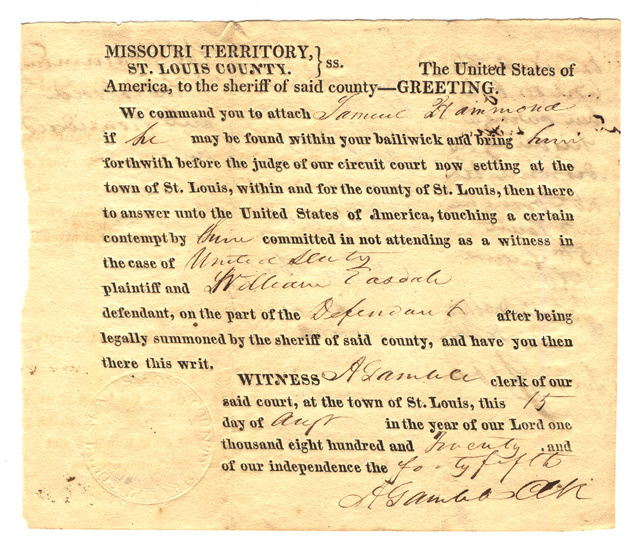 MISSOURI TERRITORY,
ST. LOUIS COUNTY. } ss. The United States of
America, to the sheriff of said county—GREETING.
We command you to attach Samuel Hammond
if he may be found within your bailiwick and bring him
forthwith before the judge of our circuit court now setting at the
town of St. Louis, within and for the county of St. Louis, then there
to answer unto the United States of America, touching a certain
contempt by him committed in not attending as a witness in
the case of United States
plaintiff and William Easdale
defendant, on the part of the Defendant after being
legally summoned by the sheriff of said county, and have you then
there this writ.
WITNESS A Gamble clerk of our
said court, at the town of St. Louis, this 15
day of Augt in the year of our Lord one
thousand eight hundred and Twenty , and
of our independence the forty fifth
A Gamble Clk